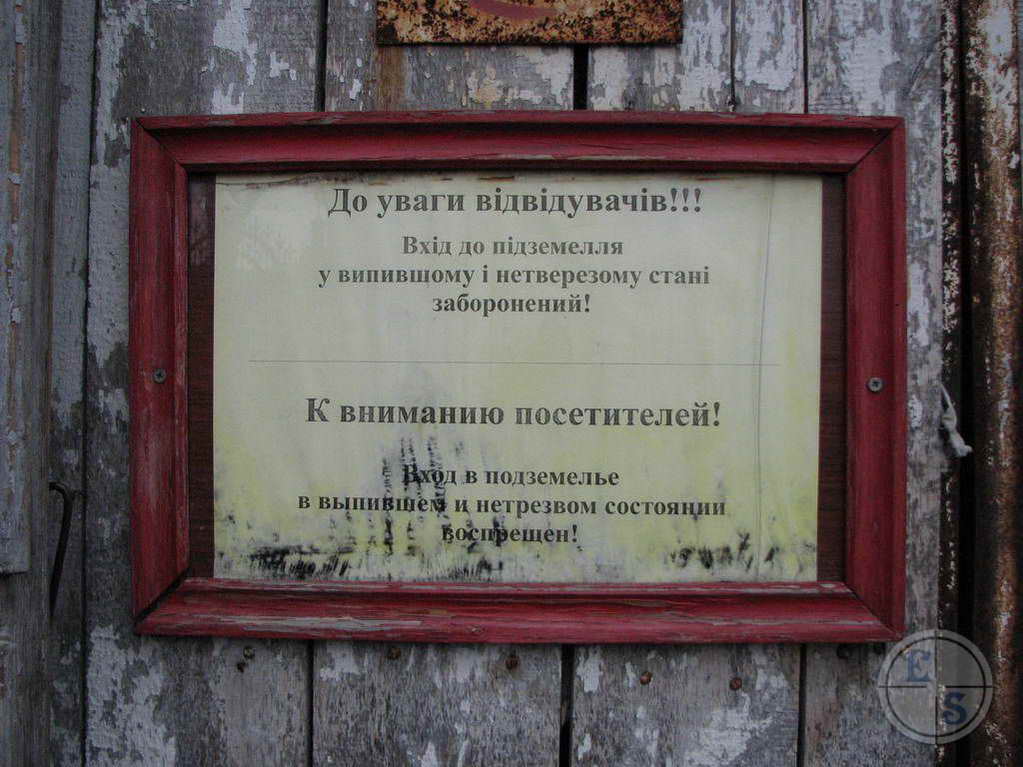 До уваги відвідувачів!!!
Вхід до підземелля
у випившому і нетверезому стані
заборонений!
К вниманию посетителей!
Вход в подземелье
в выпившем и нетрезвом состоянии
воспрещен!
E
S